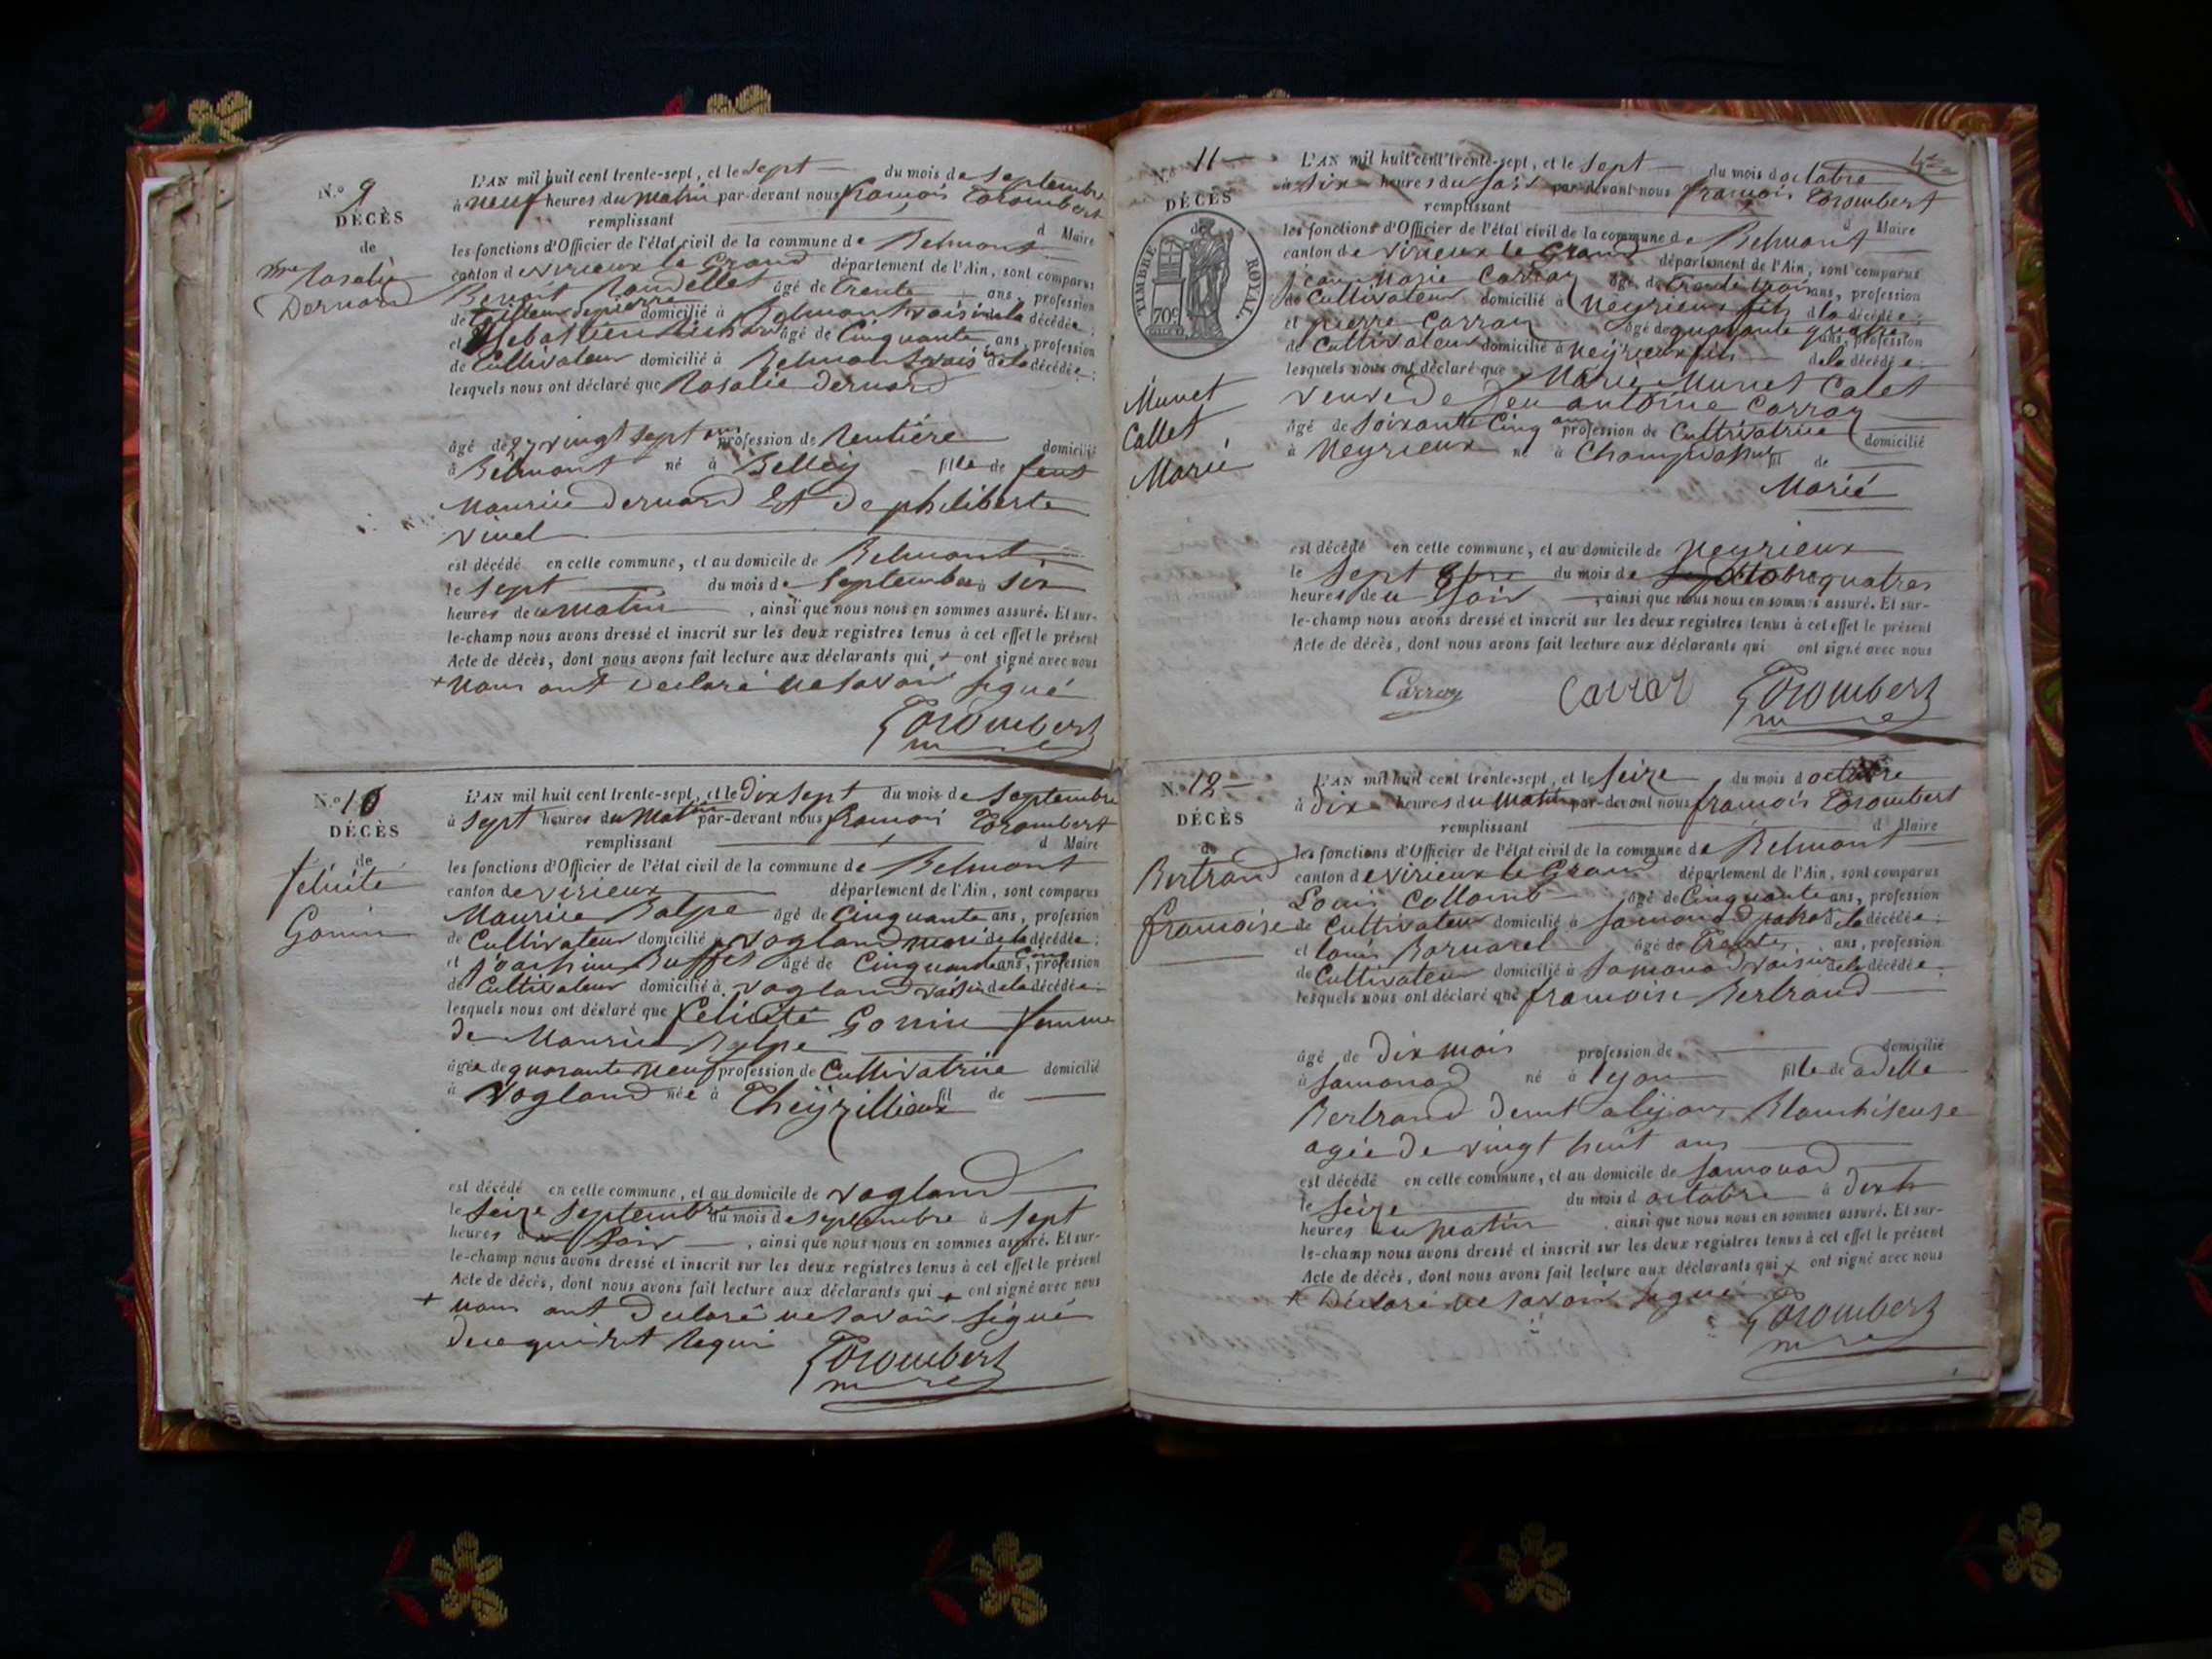 N.° 9
DÉCÈS
de
Rosalie
Dernard
L'AN mil huit cent trente-sept, et le Sept du mois de Septembre
à neuf heures du matin par-devant nous françois Corombert
remplissant d Maire
les fonctions d'Officier de l'état civil de la commune de Belmont
canton de virieux le Grand département de l'Ain, sont comparus
Benoit âgé de trente ans, profession
de tailleur de pierre domicilié à Belmont voisin de la décédée;
et Sebastien âgé de Cinquante ans, profession
de Cultivateur domicilié à Belmont voisin de la décédée;
lesquels nous ont déclaré que Rosalie Dernard
âgé de 27 vingt sept ans profession de Rentière domicilié
à Belmont né à Belley fille de feut
Maurice Dernard Et De philiberte
vinel
est décédé en cette commune, et au domicile de Belmont
le Sept du mois de Septembre à Six
heures de u matin, ainsi que nous nous en sommes assuré. Et sur-
le-champ nous avons dressé et inscrit sur les deux registres tenus à cet effet le présent
Acte de décès, dont nous avons fait lecture aux déclarants qui + ont signé avec nous
+ nous ont Declaré ne savoir signé
Corombert
N.° 10
DÉCÈS
de
felicité
Gonin
L'AN mil huit cent trente-sept, et le Dix Sept du mois de Septembre
à Sept heures du Matin par-devant nous françois Corombert
remplissant d Maire
les fonctions d'Officier de l'état civil de la commune de Belmont
canton de virieux département de l'Ain, sont comparus
Maurice Balpe âgé de Cinquante ans, profession
de Cultivateur domicilié à vogland mari de la décédée;
et Joachim Buffet âgé de Cinquante Cinq ans, profession
de Cultivateur domicilié à vogland voisin de la décédée;
lesquels nous ont déclaré que felicité Gonin femme
De Maurice Balpe
âgée de quarante neuf profession de Cultivatrice domicilié
à vogland née à Cheyzillieux fil de
est décédé en cette commune, et au domicile de vogland
le Seize Septembre du mois de Septembre à Sept
heures du Soir, ainsi que nous nous en sommes assuré. Et sur-
le-champ nous avons dressé et inscrit sur les deux registres tenus à cet effet le présent
Acte de décès, dont nous avons fait lecture aux déclarants qui + ont signé avec nous
+ nous ont Declaré ne savoir signé
De ce quirut Requi
Corombert
N.° 11
DÉCÈS
de
TIMBRE ROYAL.
70c
Munet
Callet
Marie
L'AN mil huit cent trente-sept, et le Sept du mois d octobre
à Six heures du Soir par-devant nous françois Corombert
remplissant d Maire
les fonctions d'Officier de l'état civil de la commune de Belmont
canton de virieux le Grand département de l'Ain, sont comparus
Jean Marie Carray âgé de trente trois ans, profession
de Cultivateur domicilié à Neyrieux fils d la décédée;
et pierre Carray âgé de quarante quatre ans, profession
de Cultivateur domicilié à Neyrieux fils de la décédée;
lesquels nous ont déclaré que Marie Munet Calet
veuve De feu antoine Carray
âgé de Soixante Cinq ans profession de Cultivatrice domicilié
à Neyrieux né à fil de
Marié
est décédé en cette commune, et au domicile de Neyrieux
le Sept 8bre du mois de octobre quatres
heures de u Soir, ainsi que nous nous en sommes assuré. Et sur-
le-champ nous avons dressé et inscrit sur les deux registres tenus à cet effet le présent
Acte de décès, dont nous avons fait lecture aux déclarants qui ont signé avec nous
Carray Carray Corombert
N.° 12
DÉCÈS
de
Bertrand
francoise
L'AN mil huit cent trente-sept, et le Seize du mois d octobre
à dix heures du Matin par-devant nous françois Corombert
remplissant d Maire
les fonctions d'Officier de l'état civil de la commune de Belmont
canton de virieux le Grand département de l'Ain, sont comparus
Louis Collomb âgé de Cinquante ans, profession
de Cultivateur domicilié à Samonod de la décédée;
et louis Bornarel âgé de Trente ans, profession
de Cultivateur domicilié à Samonod voisin de la décédée;
lesquels nous ont déclaré que francoise Bertrand
âgé de Dix mois profession de domicilié
à Samonod né à lyon fille de adelle
Bertrand Demt a lyon Blanchiseuse
agée De vingt huit ans
est décédé en cette commune, et au domicile de Samonod
le Seize du mois d octobre à dix h
heures du Matin, ainsi que nous nous en sommes assuré. Et sur-
le-champ nous avons dressé et inscrit sur les deux registres tenus à cet effet le présent
Acte de décès, dont nous avons fait lecture aux déclarants qui x ont signé avec nous
x Declaré ne savoir signé
Corombert